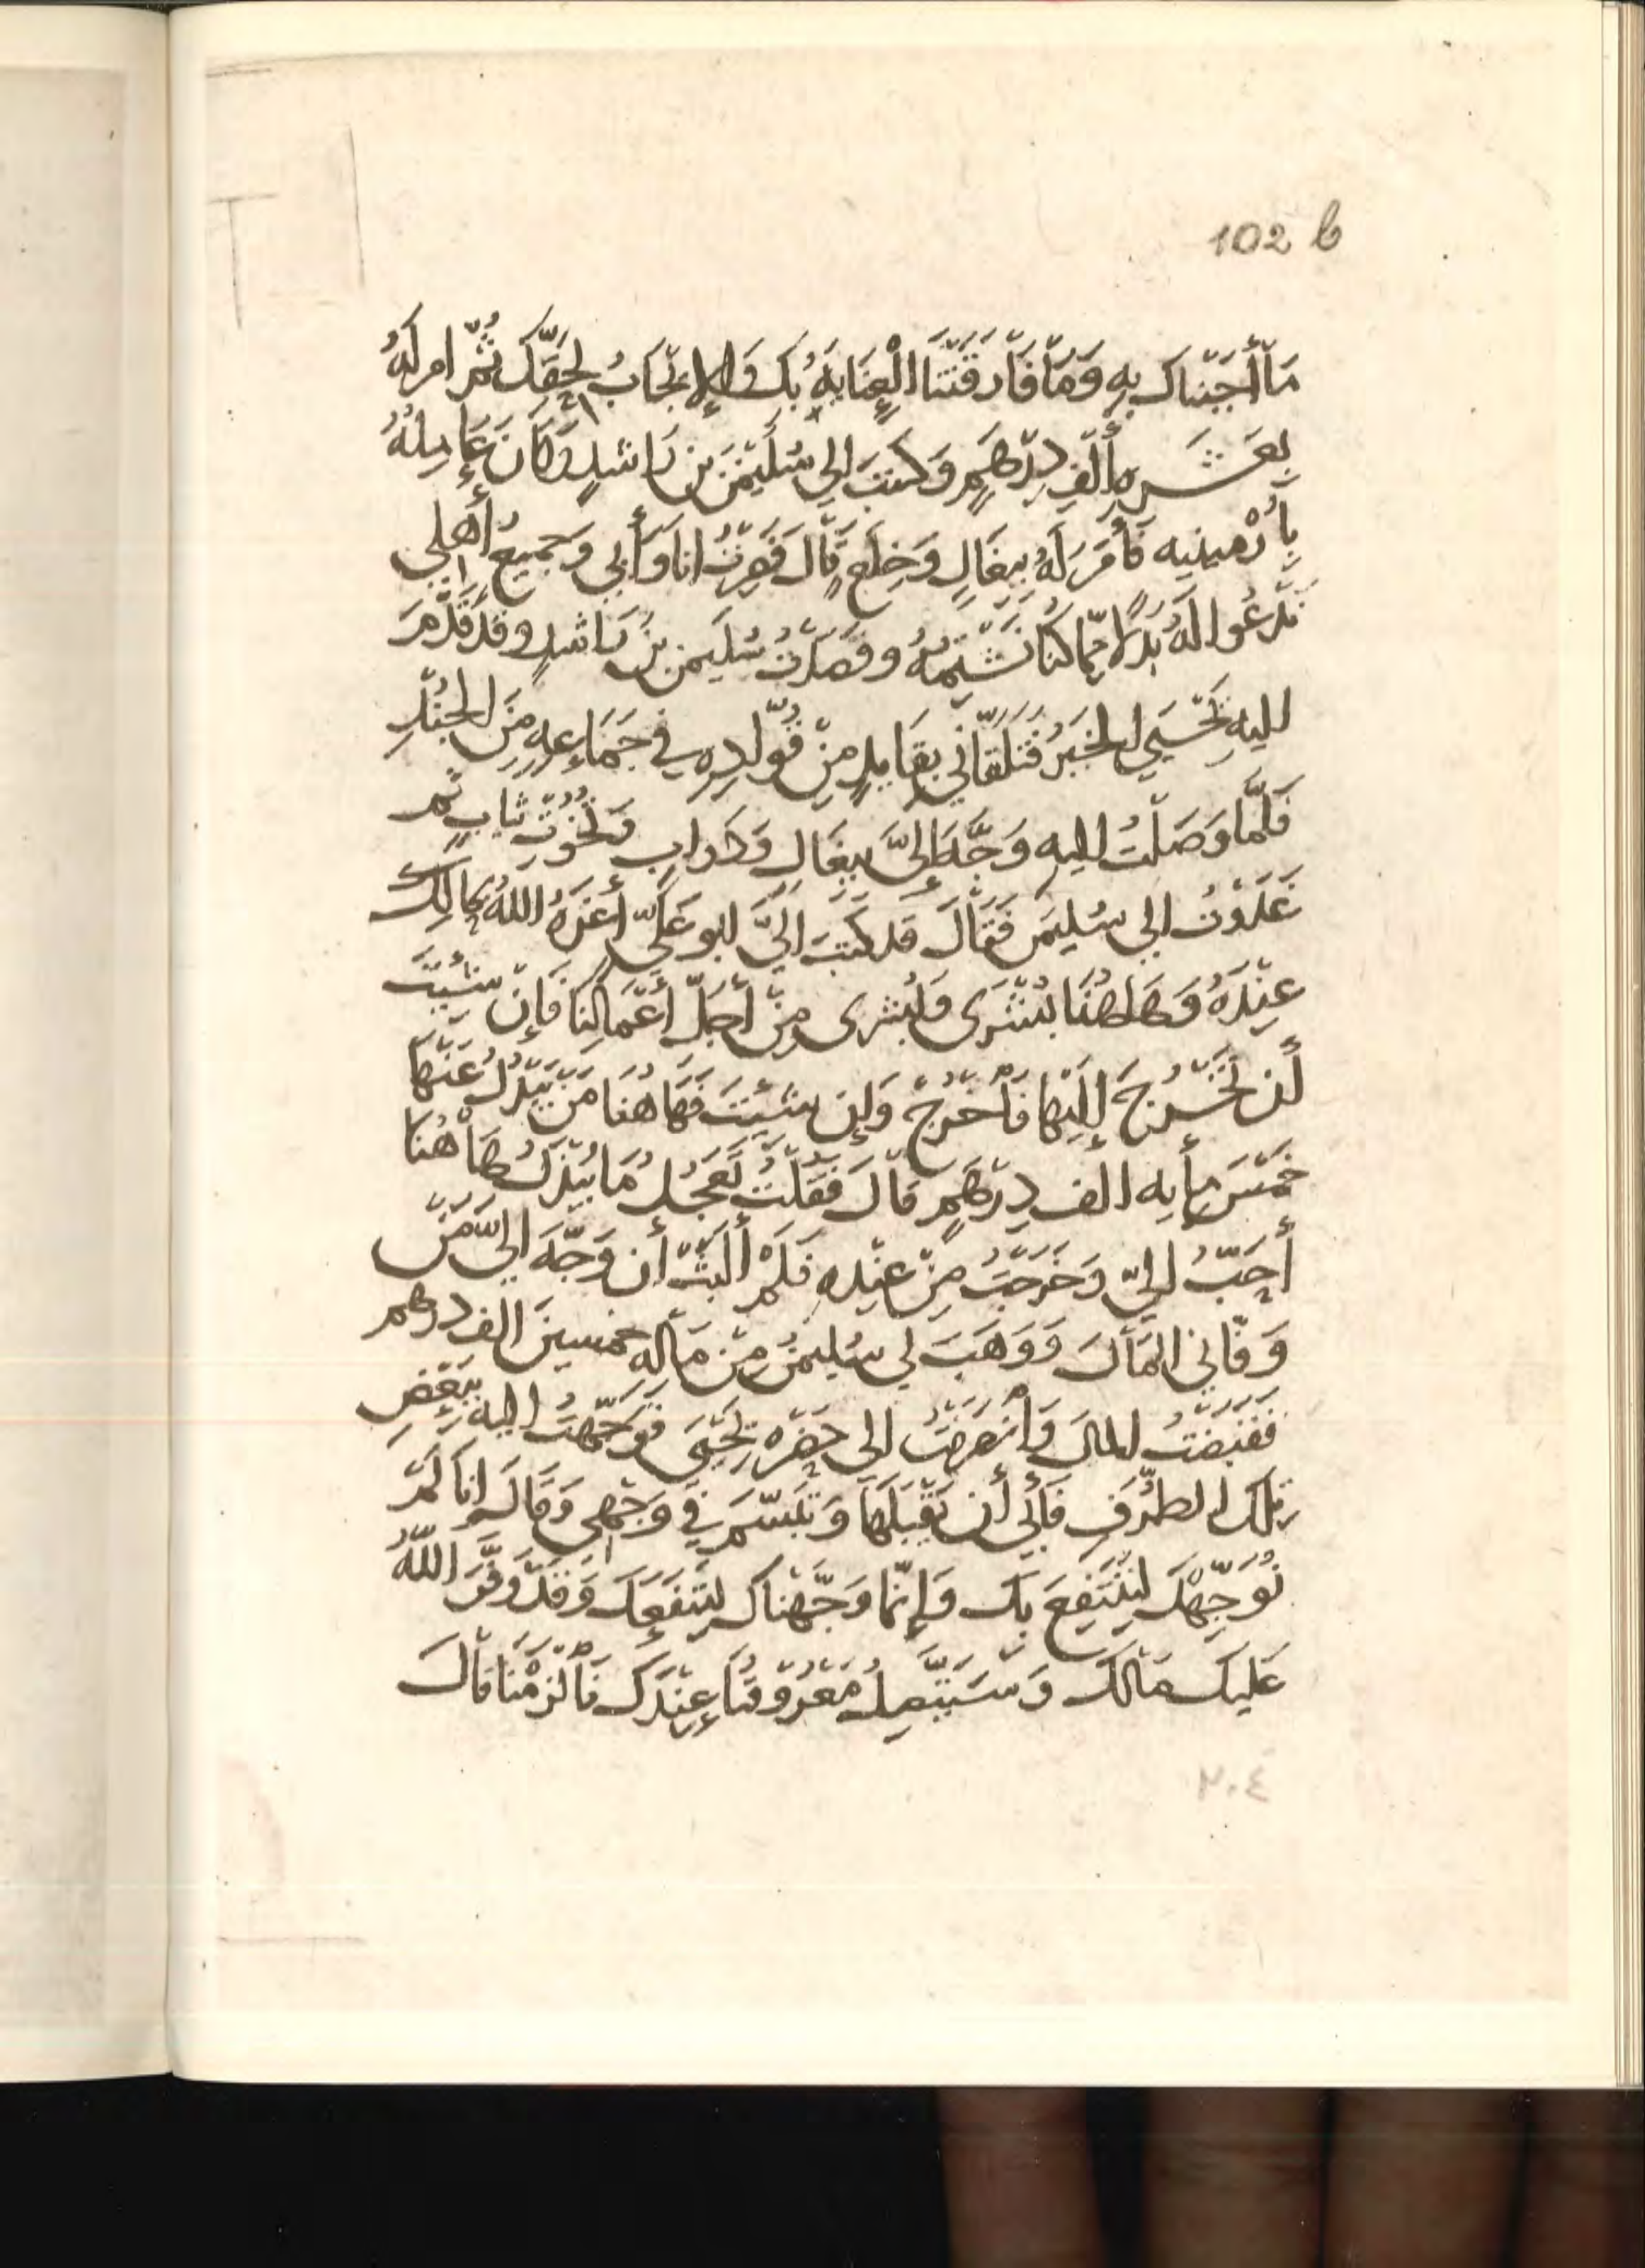 102 b
مَا أجَبْناكَ بِهِ وَمَا فَارقَتْنَا الْعِنَايَهُ بِكَ وَالإِيجَابُ لِحَقِّكَ ثُمَّ امر لَهُ
بِعَشَرهِ أَلْفِ دِرْهَمٍ وَكَتَبَ إلى سُلَيْمٰنَ بن رَاشدٍ وَكَانَ عَامِلهُ
بِأَرْمينيه فَأَمَرَ لَهُ بِبِغَالٍ وَخِلَعٍ قَالَ فَصِرْتُ انا وَأَبي وَجَميعُ أَهلي
نَدْعُوا لَهُ بَدَلًا مِمَّا كُنَّا نَشْتِمُهُ وقَصَدْتُ سُلَيمن بْنَ رَاشدٍ وقَدْ قَدَّمَ
اليهِ يَحْيَى الخَبَرَ فَتَلَقَّانِي بقَايدٍ مِنْ قُوَّادِهِ في جَمَاعهٍ مِنَ الجُنْدِ
فَلَمَّا وَصَلْتُ اليهِ وَجَّهَ إِلىَّ بِبِغَالٍ وَدَوابٍ وَتُخُوتِ ثيابٍ ثم
غَدَوْتُ الى سُليمن فَقَالَ قد كَتَبَ الَيَّ ابو عَلىّ أَعَزَّهُ اللهُ بحَالِكَ
عِنْدَهُ وَهَاهُنَا بُشْرَى وَبُشرى مِنْ أجَلّ أَعْمَالِنَا فَإنْ شِئْتَ
أَن تَخْرُجَ إلَيْها فَاخْرُجْ وَإن شئْتَ فَهَاهُنَا مَنْ يَبْذُلُ عَنْهَا
خَمْسَ مِأيه الف دِرْهَمٍ قالَ فَقُلْتُ تَعَجُّلُ مَا يُبْذَلُ هَاهُنَا
أَحَبُّ إليّ وَخَرَجْتُ مِنْ عِنْدِهِ فَلَمْ أَلْبَثْ أن وَجَّهَ إلىَّ مَنْ
وَفَّاني المَالَ وَوَهَبَ لي سُليمنُ مِنْ مَالِهِ خمسينَ الف درهم
فَقَبَضْتُ المالَ وَانْصَرَفْتُ الى حَضْرهِ يَحْيَى فَوَجَّهْتُ اليه بِبَعْضِ
تِلْكَ الطُّرَفِ فَأَبى أن يَقْبَلَهَا وَتَبَسَّمَ في وَجْهى وَقَالَ إنا لَمْ
نُوَجِّهْكَ لِنَنْتَفِعَ بِكَ وَإنّما وَجَّهْناكَ لِنَنْفَعَكَ وَقَدْ وَفَّرَ اللهُ
عَلَيكَ مَالَكَ وَسَيَتَّصِلُ مَعْرُوفُنَا عِنْدَكَ فَالْزَمْنَا قالَ
٢٠٤